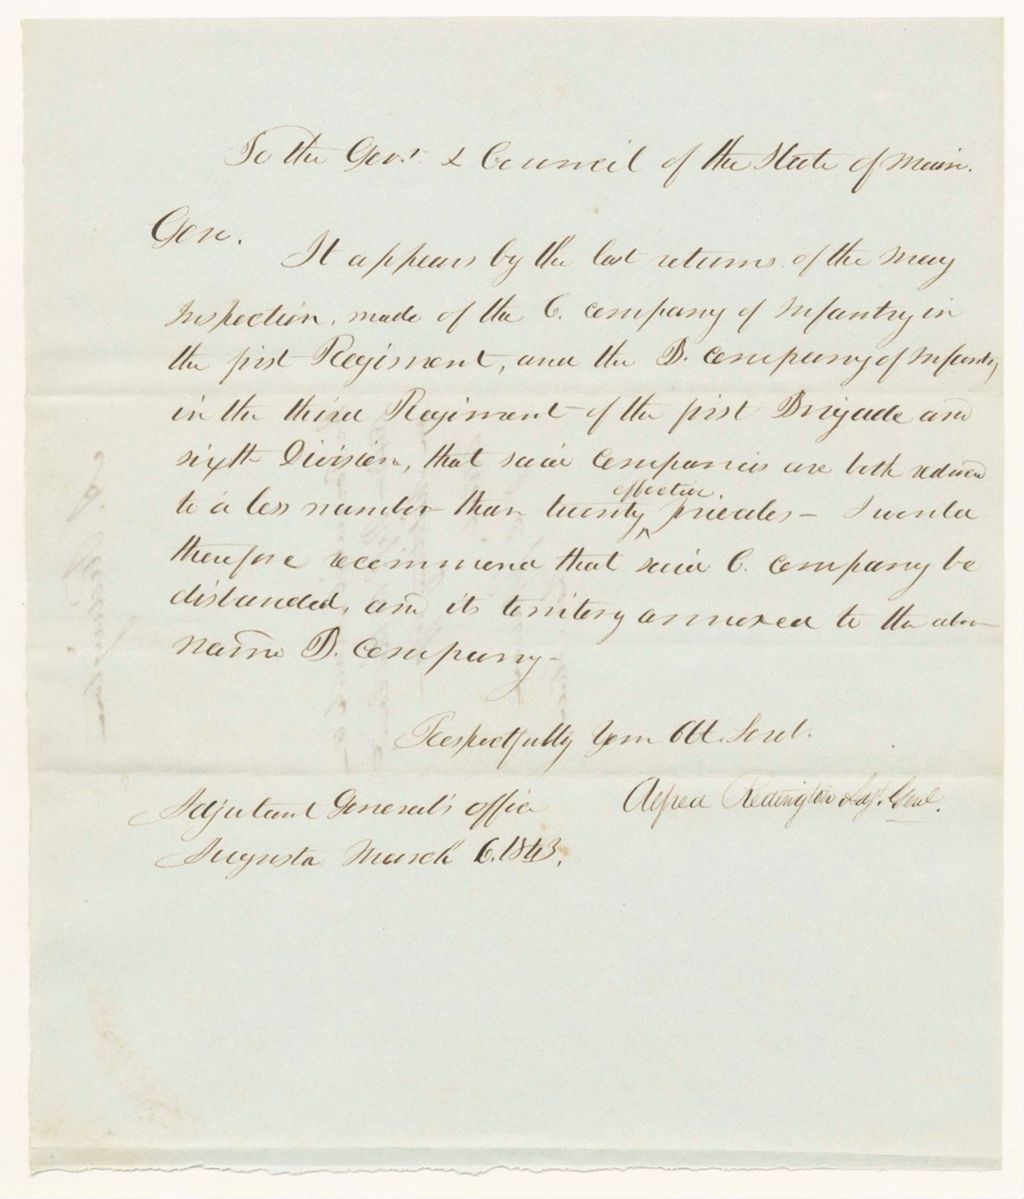 To the Govr. & Council of the State of Main.
Gen.
It appears by the last returns of the May
Inspection, made of the C. company of Infantry in
the first Regiment, and the B. company of Infantry
in the third Regiment of the first Brigade and
sixth Division, that said companies are both reduced
effective.
to a less number than twenty privates – I would
therefore recommend that said C. company be
disbanded, and its territory annexed to the above
named B. company –
Respectfully Your Obt. Servt.
Alfred Redington Adjt. Genl.
Adjutant General's office
Augusta March 6. 1843.